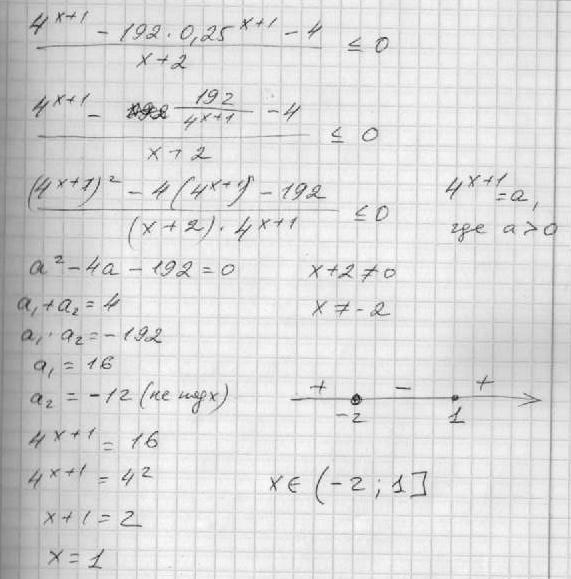 (4^{x+1} - 192 · 0,25^{x+1} - 4) / (x+2) ≤ 0
(4^{x+1} - 192/4^{x+1} - 4) / (x+2) ≤ 0
((4^{x+1})² - 4(4^{x+1}) - 192) / ((x+2) · 4^{x+1}) ≤ 0
4^{x+1} = a,
где a > 0
a² - 4a - 192 = 0
x+2 ≠ 0
a₁ + a₂ = 4
x ≠ -2
a₁ · a₂ = -192
a₁ = 16
a₂ = -12 (не подх)
+ - +
-2 1
4^{x+1} = 16
4^{x+1} = 4²
x ∈ (-2; 1]
x+1 = 2
x = 1